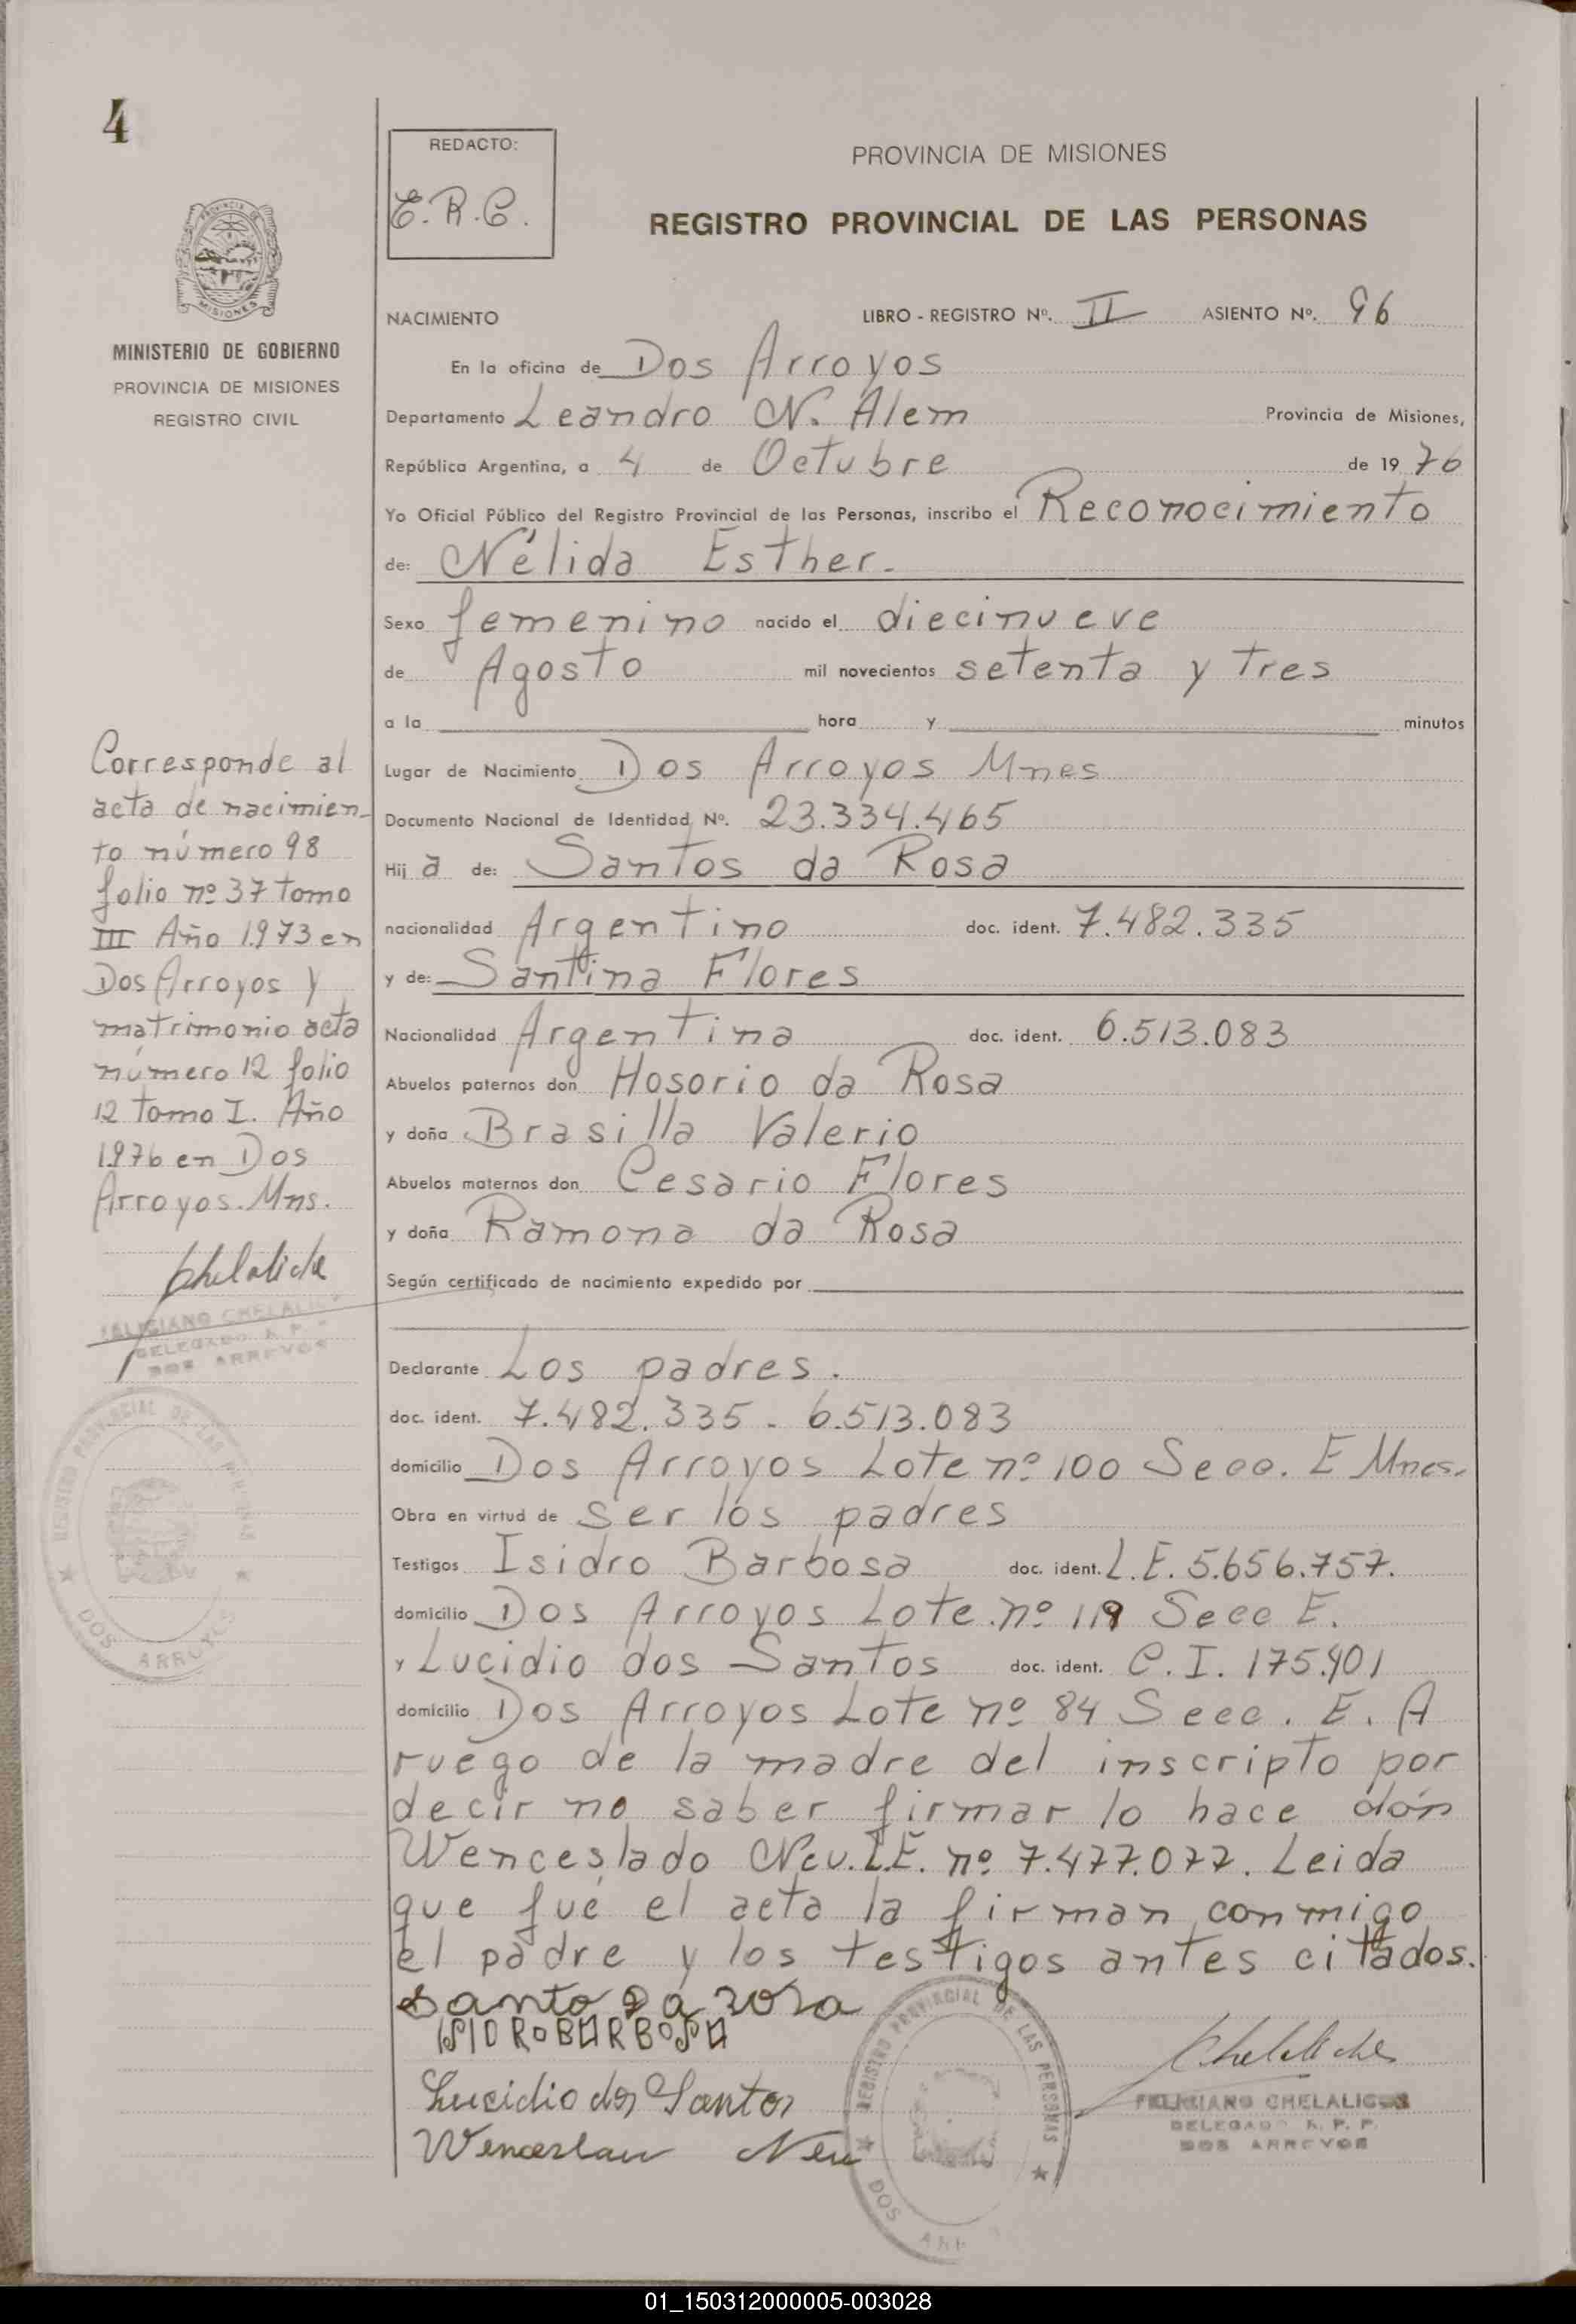 4
REDACTO:
E.R.C.
PROVINCIA DE MISIONES
REGISTRO PROVINCIAL DE LAS PERSONAS
MINISTERIO DE GOBIERNO
PROVINCIA DE MISIONES
REGISTRO CIVIL
NACIMIENTO LIBRO - REGISTRO Nº. II ASIENTO Nº. 96
En la oficina de Dos Arroyos
Departamento Leandro N. Alem Provincia de Misiones,
República Argentina, a 4 de Octubre de 19 76
Yo Oficial Público del Registro Provincial de las Personas, inscribo el Reconocimiento
de: Nélida Esther.
Sexo femenino nacido el diecinueve
de Agosto mil novecientos setenta y tres
a la hora y minutos
Lugar de Nacimiento Dos Arroyos Mnes
Documento Nacional de Identidad Nº. 23.334.465
Hij a de: Santos da Rosa
nacionalidad Argentino doc. ident. 7.482.335
y de: Santina Flores
Nacionalidad Argentina doc. ident. 6.513.083
Abuelos paternos don Hosorio da Rosa
y doña Brasilla Valerio
Abuelos maternos don Cesario Flores
y doña Ramona da Rosa
Según certificado de nacimiento expedido por
Declarante Los padres.
doc. ident. 7.482.335 - 6.513.083
domicilio Dos Arroyos Lote nº 100 Secc. E Mnes.
Obra en virtud de ser los padres
Testigos Isidro Barbosa doc. ident. L.E. 5.656.757.
domicilio Dos Arroyos Lote nº 119 Secc E.
y Lucidio dos Santos doc. ident. C.I. 175.901
domicilio Dos Arroyos Lote nº 84 Secc. E. A
ruego de la madre del inscripto por
decir no saber firmar lo hace dón
Wenceslado Neu. L.E. nº 7.477.077. Leida
que fué el acta la firman conmigo
el padre y los testigos antes citados.
Santo da rosa
ISIDRO BARBOSA
Lucidio dos Santos
Wenceslau Neu
Corresponde al
acta de nacimien-
to número 98
folio nº 37 tomo
III Año 1.973 en
Dos Arroyos y
matrimonio acta
número 12 folio
12 tomo I. Año
1.976 en Dos
Arroyos. Mns.
Chelaliche
FELICIANO CHELALICHE
DELEGADO R. P. P.
DOS ARROYOS
REGISTRO PROVINCIAL DE LAS PERSONAS
DOS ARROYOS
Chelaliche
FELICIANO CHELALICHE
DELEGADO R. P. P.
DOS ARROYOS
REGISTRO PROVINCIAL DE LAS PERSONAS
DOS ARR
01_150312000005-003028